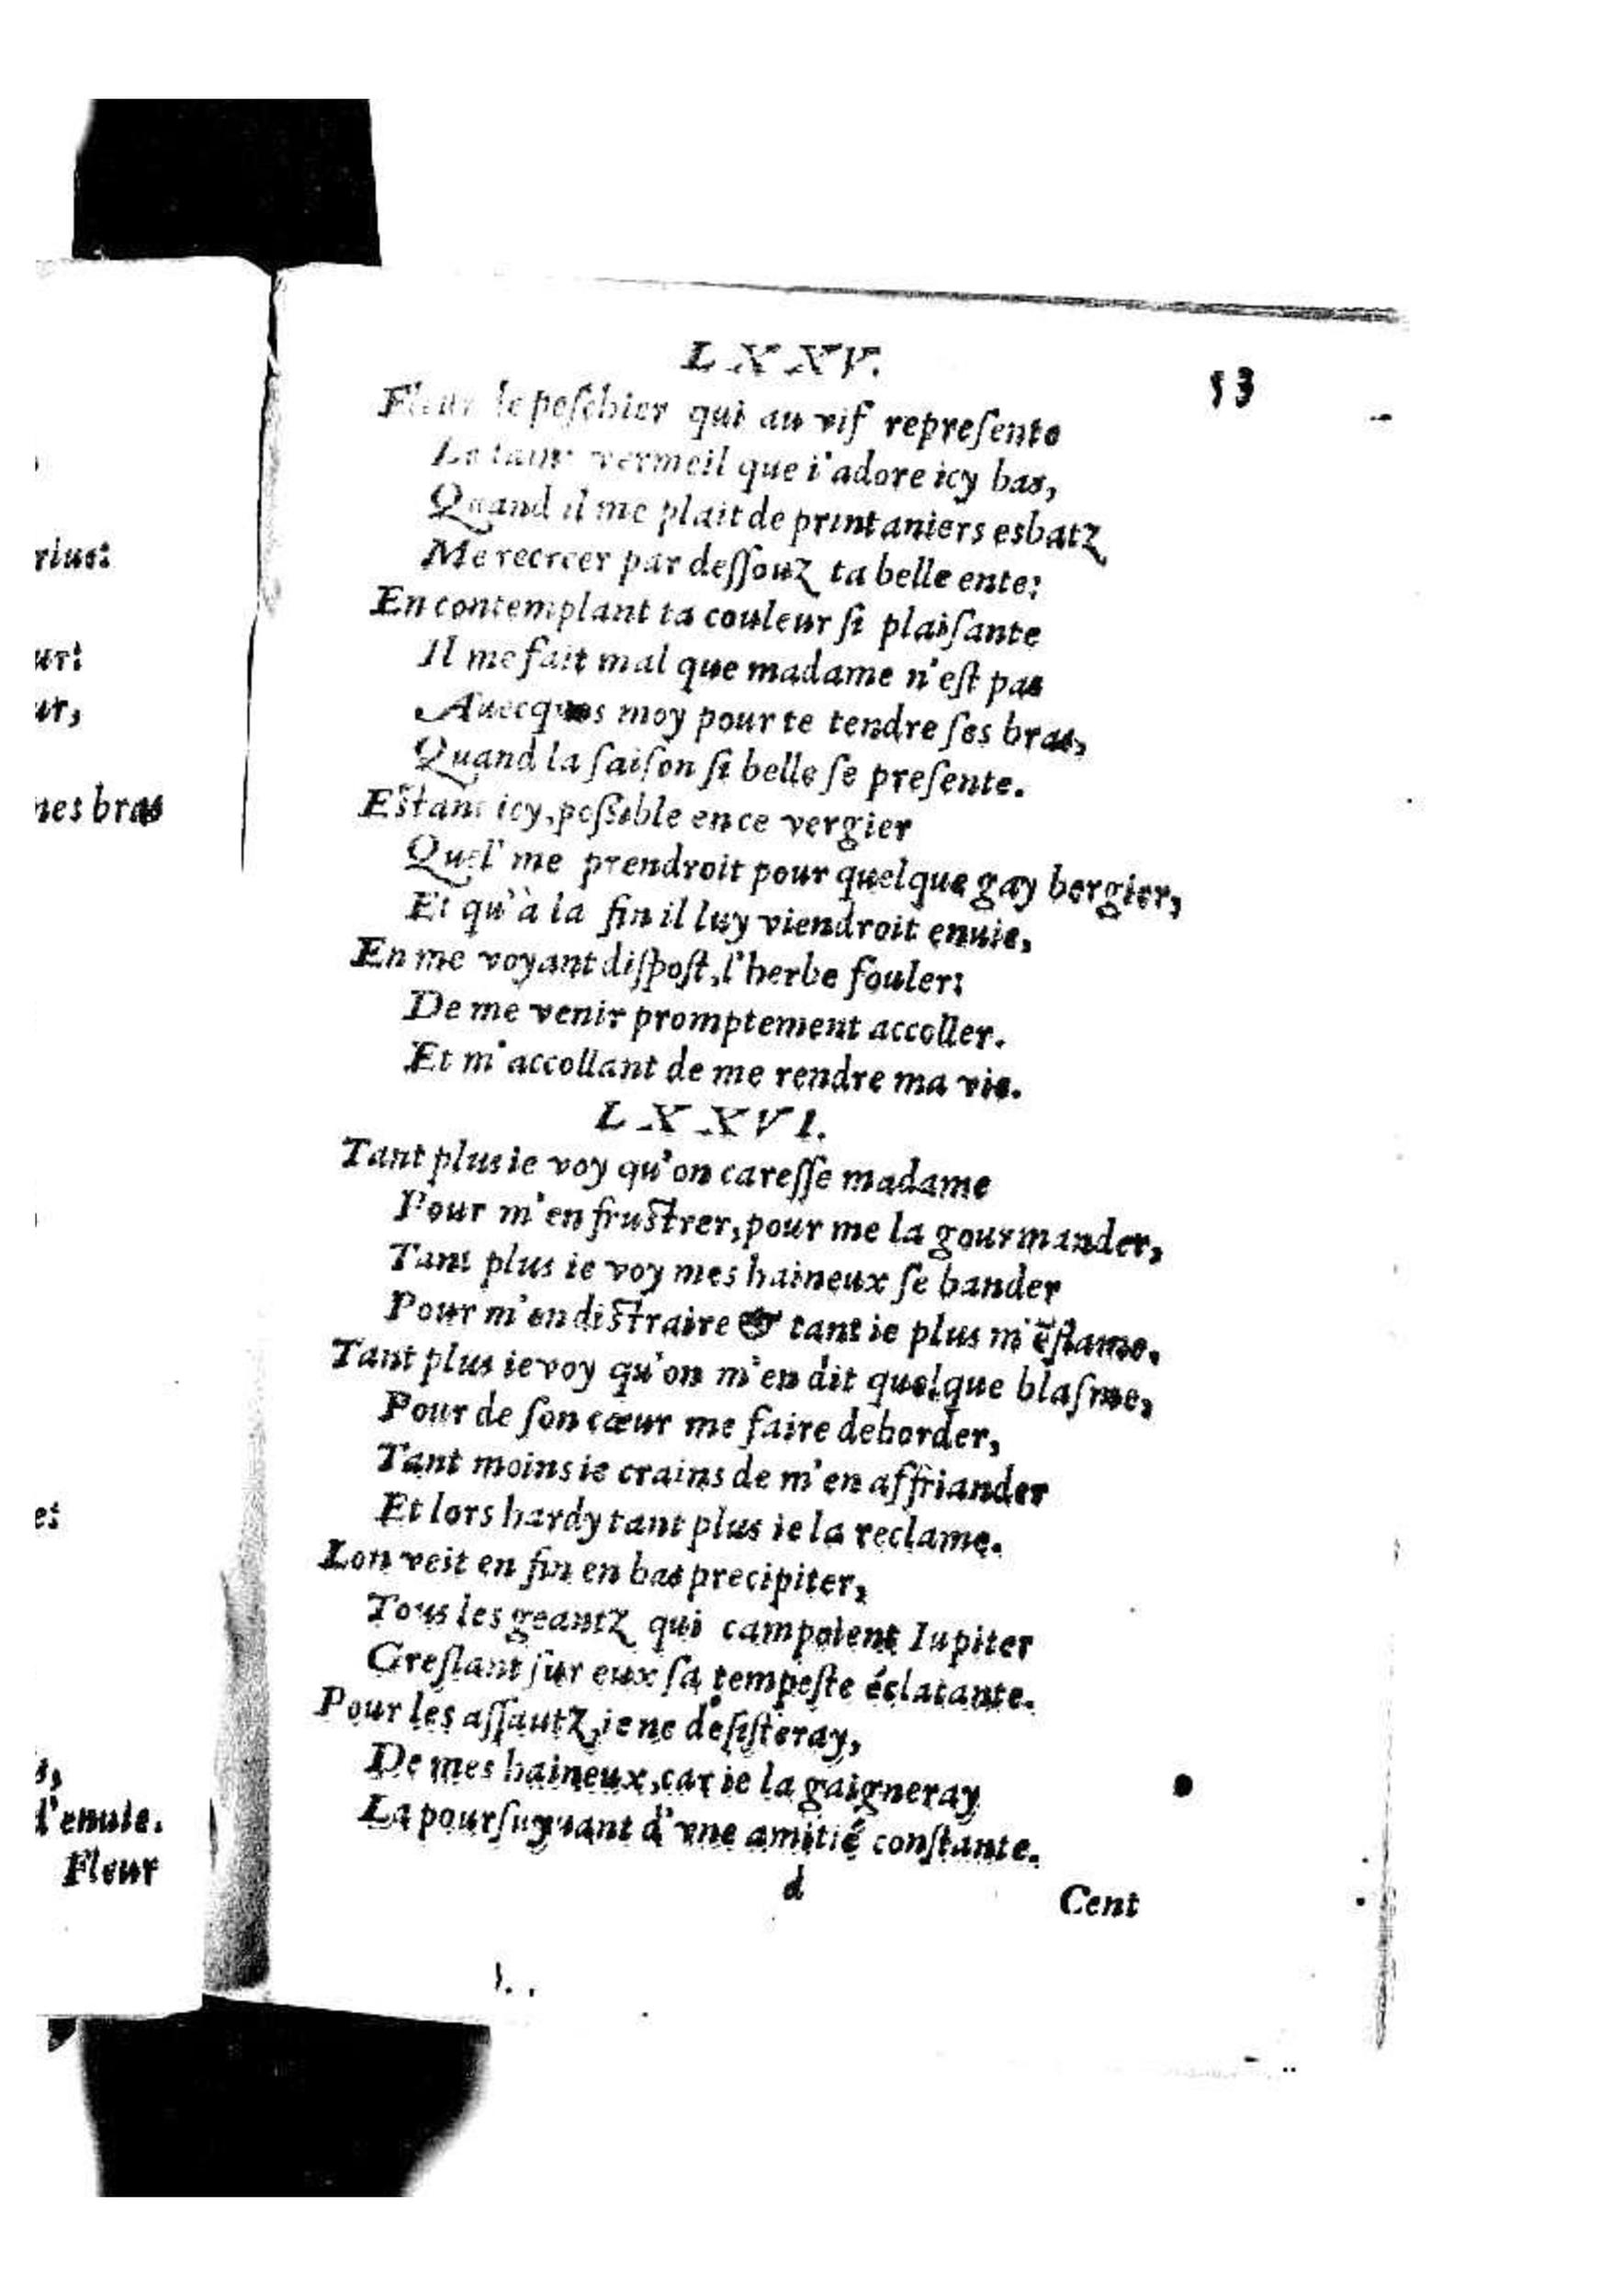 LXXV.
53
Fleur de peſchier qui au vif repreſente
Le taint vermeil que i'adore icy bas,
Quand il me plait de printaniers esbatz
Me recreer par deſſouz ta belle ente:
En contemplant ta couleur ſi plaiſante
Il me fait mal que madame n'eſt pas
Auecques moy pour te tendre ſes bras,
Quand la ſaiſon ſi belle ſe preſente.
Eſtant icy, poſſible en ce vergier
Quel' me prendroit pour quelque gay bergier,
Et qu'à la fin il luy viendroit enuie,
En me voyant diſpoſt, l'herbe fouler:
De me venir promptement accoller.
Et m'accollant de me rendre ma vie.
LXXVI.
Tant plus ie voy qu'on careſſe madame
Pour m'en fruſtrer, pour me la gourmander,
Tant plus ie voy mes haineux ſe bander
Pour m'en diſtraire & tant ie plus m'ẽflame.
Tant plus ie voy qu'on m'en dit quelque blaſme,
Pour de ſon cœur me faire deborder,
Tant moins ie crains de m'en affriander
Et lors hardy tant plus ie la reclame.
Lon veit en fin en bas precipiter,
Tous les geantz qui campoient Iupiter
Greſlant ſur eux ſa tempeſte éclatante.
Pour les aſſautz, ie ne deſiſteray,
De mes haineux, car ie la gaigneray
La pourſuyuant d'vne amitié conſtante.
d
Cent
rius:
ur:
ur,
nes bras
es
s,
d'enuie.
Fleur